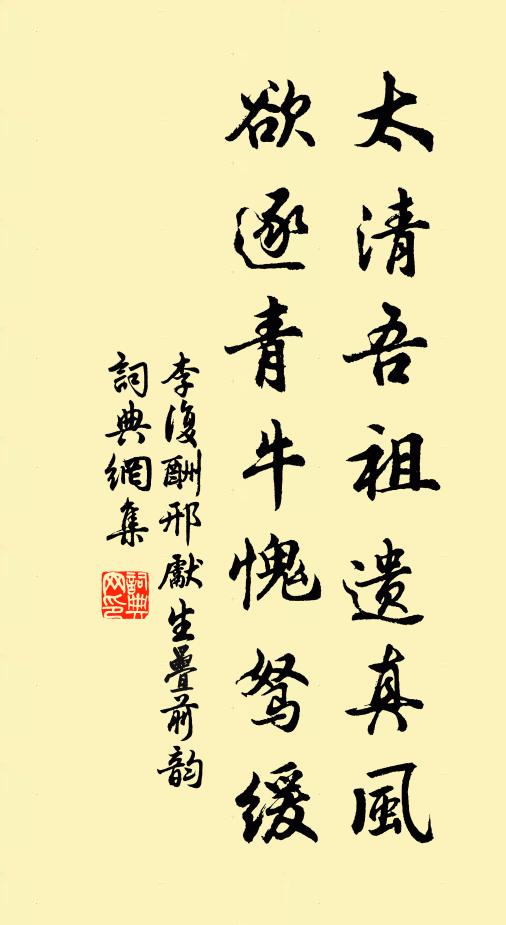 太清吾祖遺真風
欲逐青牛愧駑緩
李復酬邢獻生疊前韵
詞典網集
詞典网印